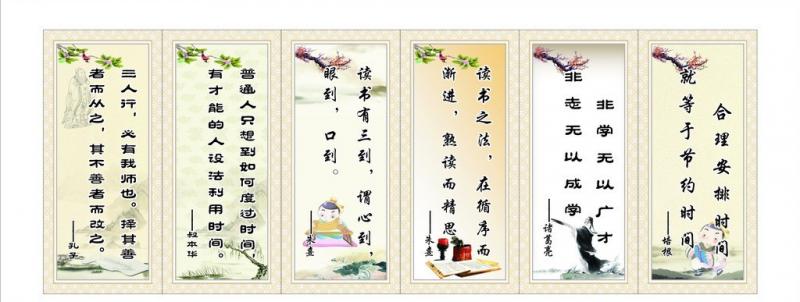 三人行，必有我师也。择其善
者而从之，其不善者而改之。
——孔子
普通人只想到如何度过时间，
有才能的人设法利用时间。
——叔本华
读书有三到，谓心到，
眼到，口到。
——朱熹
读书之法，在循序而
渐进，熟读而精思
——朱熹
非学无以广才
非志无以成学
——诸葛亮
合理安排时间
就等于节约时间
——培根